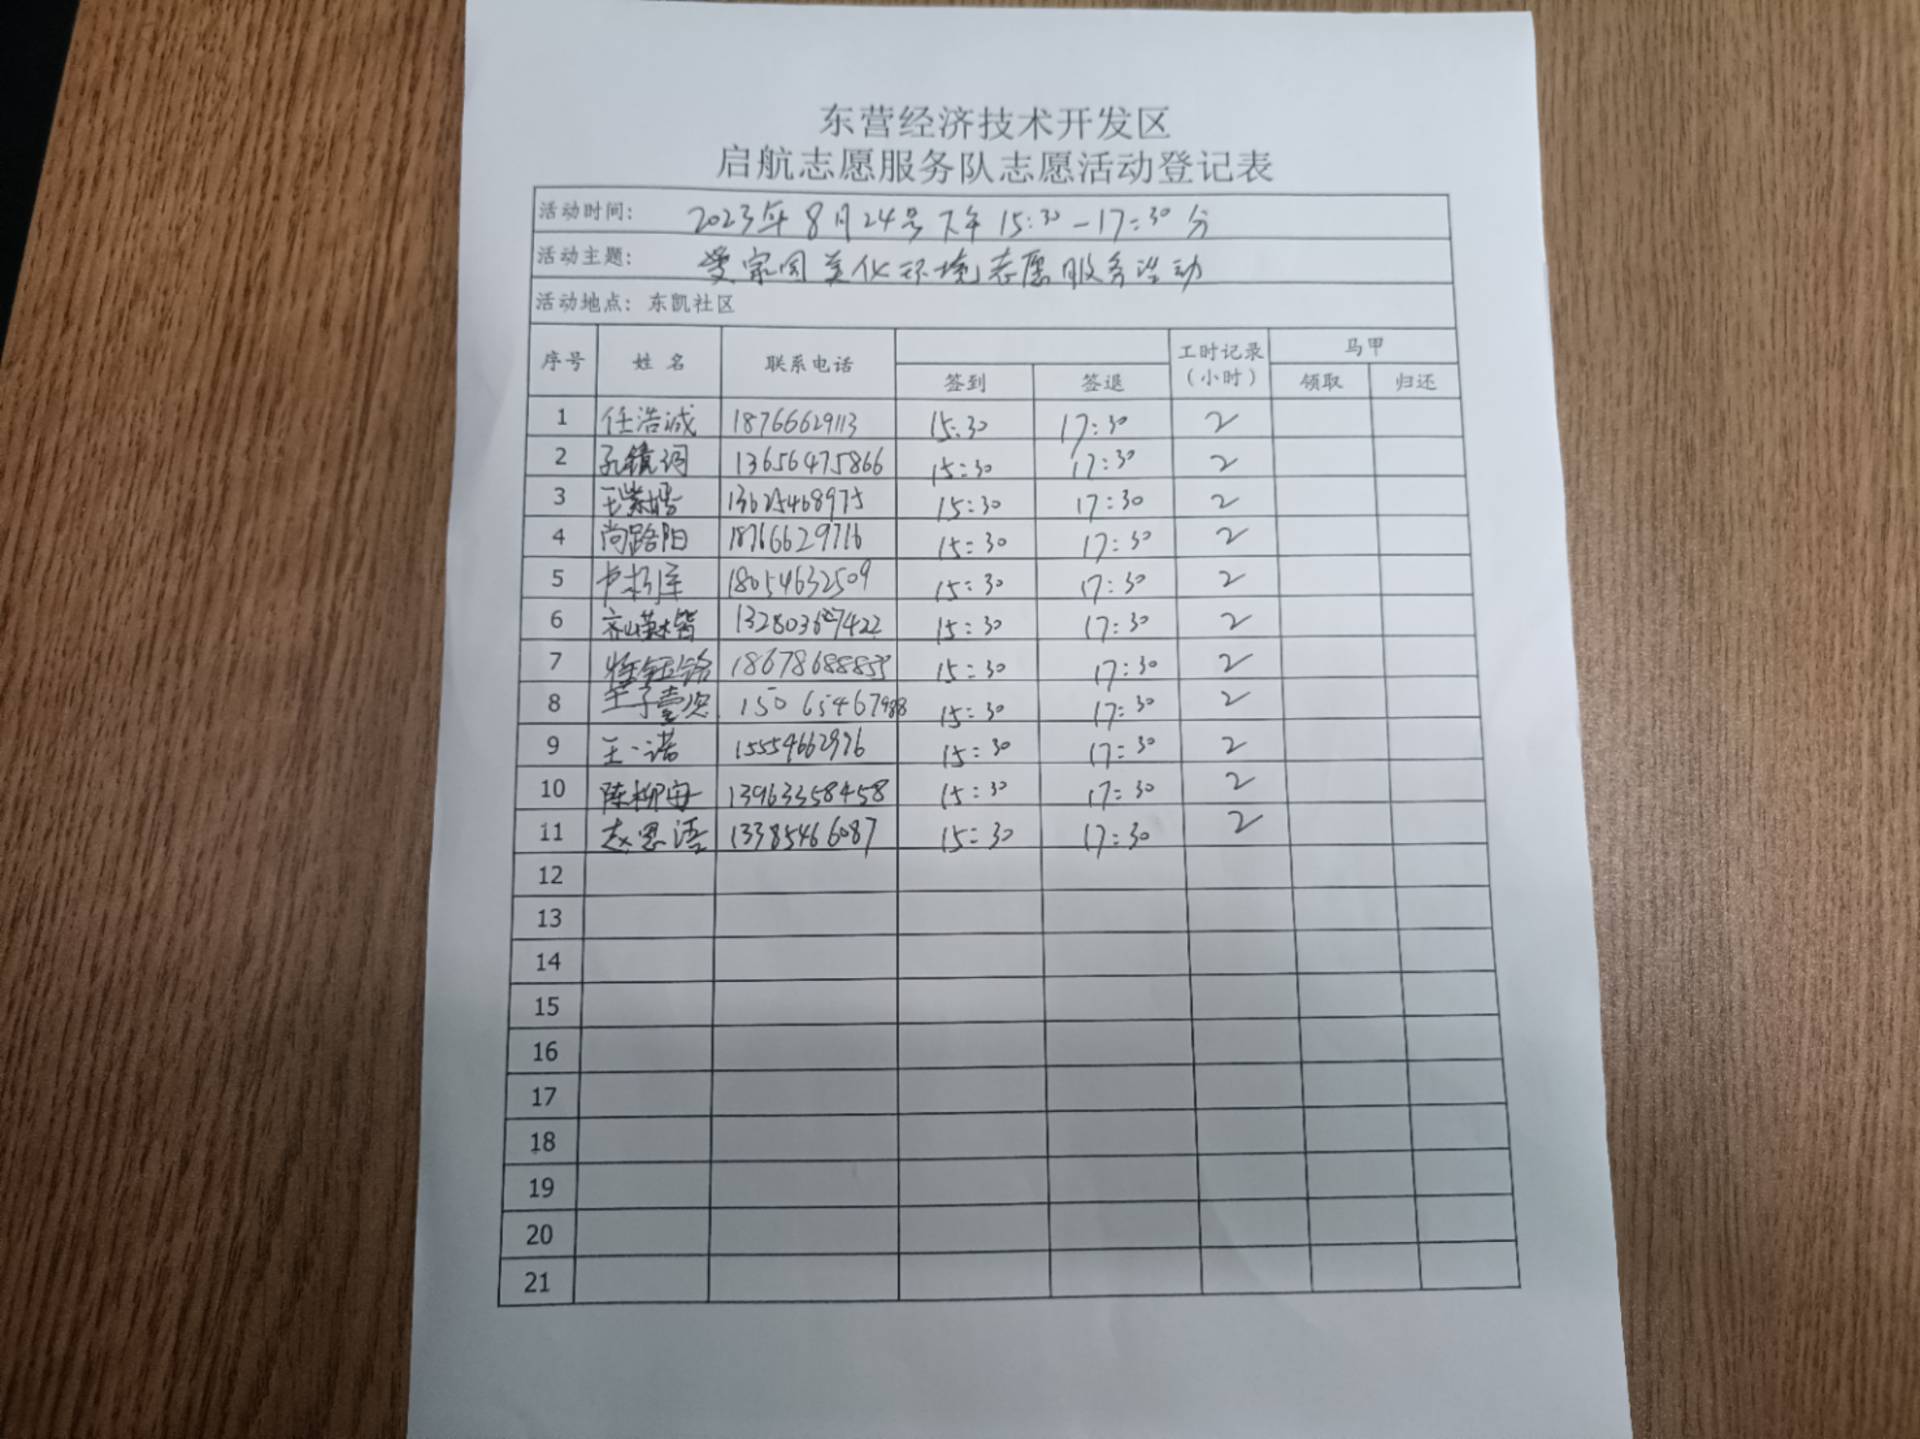 东营经济技术开发区
启航志愿服务队志愿活动登记表
活动时间: 2023年8月24号下午15:30-17:30分
活动主题: 爱家园美化环境志愿服务活动
活动地点: 东凯社区
序号 姓名 联系电话 工时记录（小时） 马甲
签到 签退 领取 归还
1 任浩诚 18766629113 15:30 17:30 2
2 孔镇词 13656475866 15:30 17:30 2
3 王紫皓 13625468975 15:30 17:30 2
4 尚路阳 18766629716 15:30 17:30 2
5 18054632509 15:30 17:30 2
6 15:30 17:30 2
7 15:30 17:30 2
8 王子壹 15065467988 15:30 17:30 2
9 王一诺 15554662976 15:30 17:30 2
10 陈柳安 13963358458 15:30 17:30 2
11 赵思语 13385466087 15:30 17:30 2
12
13
14
15
16
17
18
19
20
21